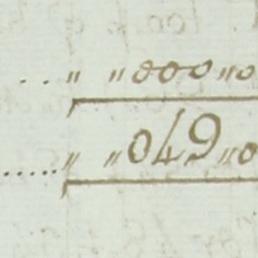 ... „ „000„0
..... „ „049„0